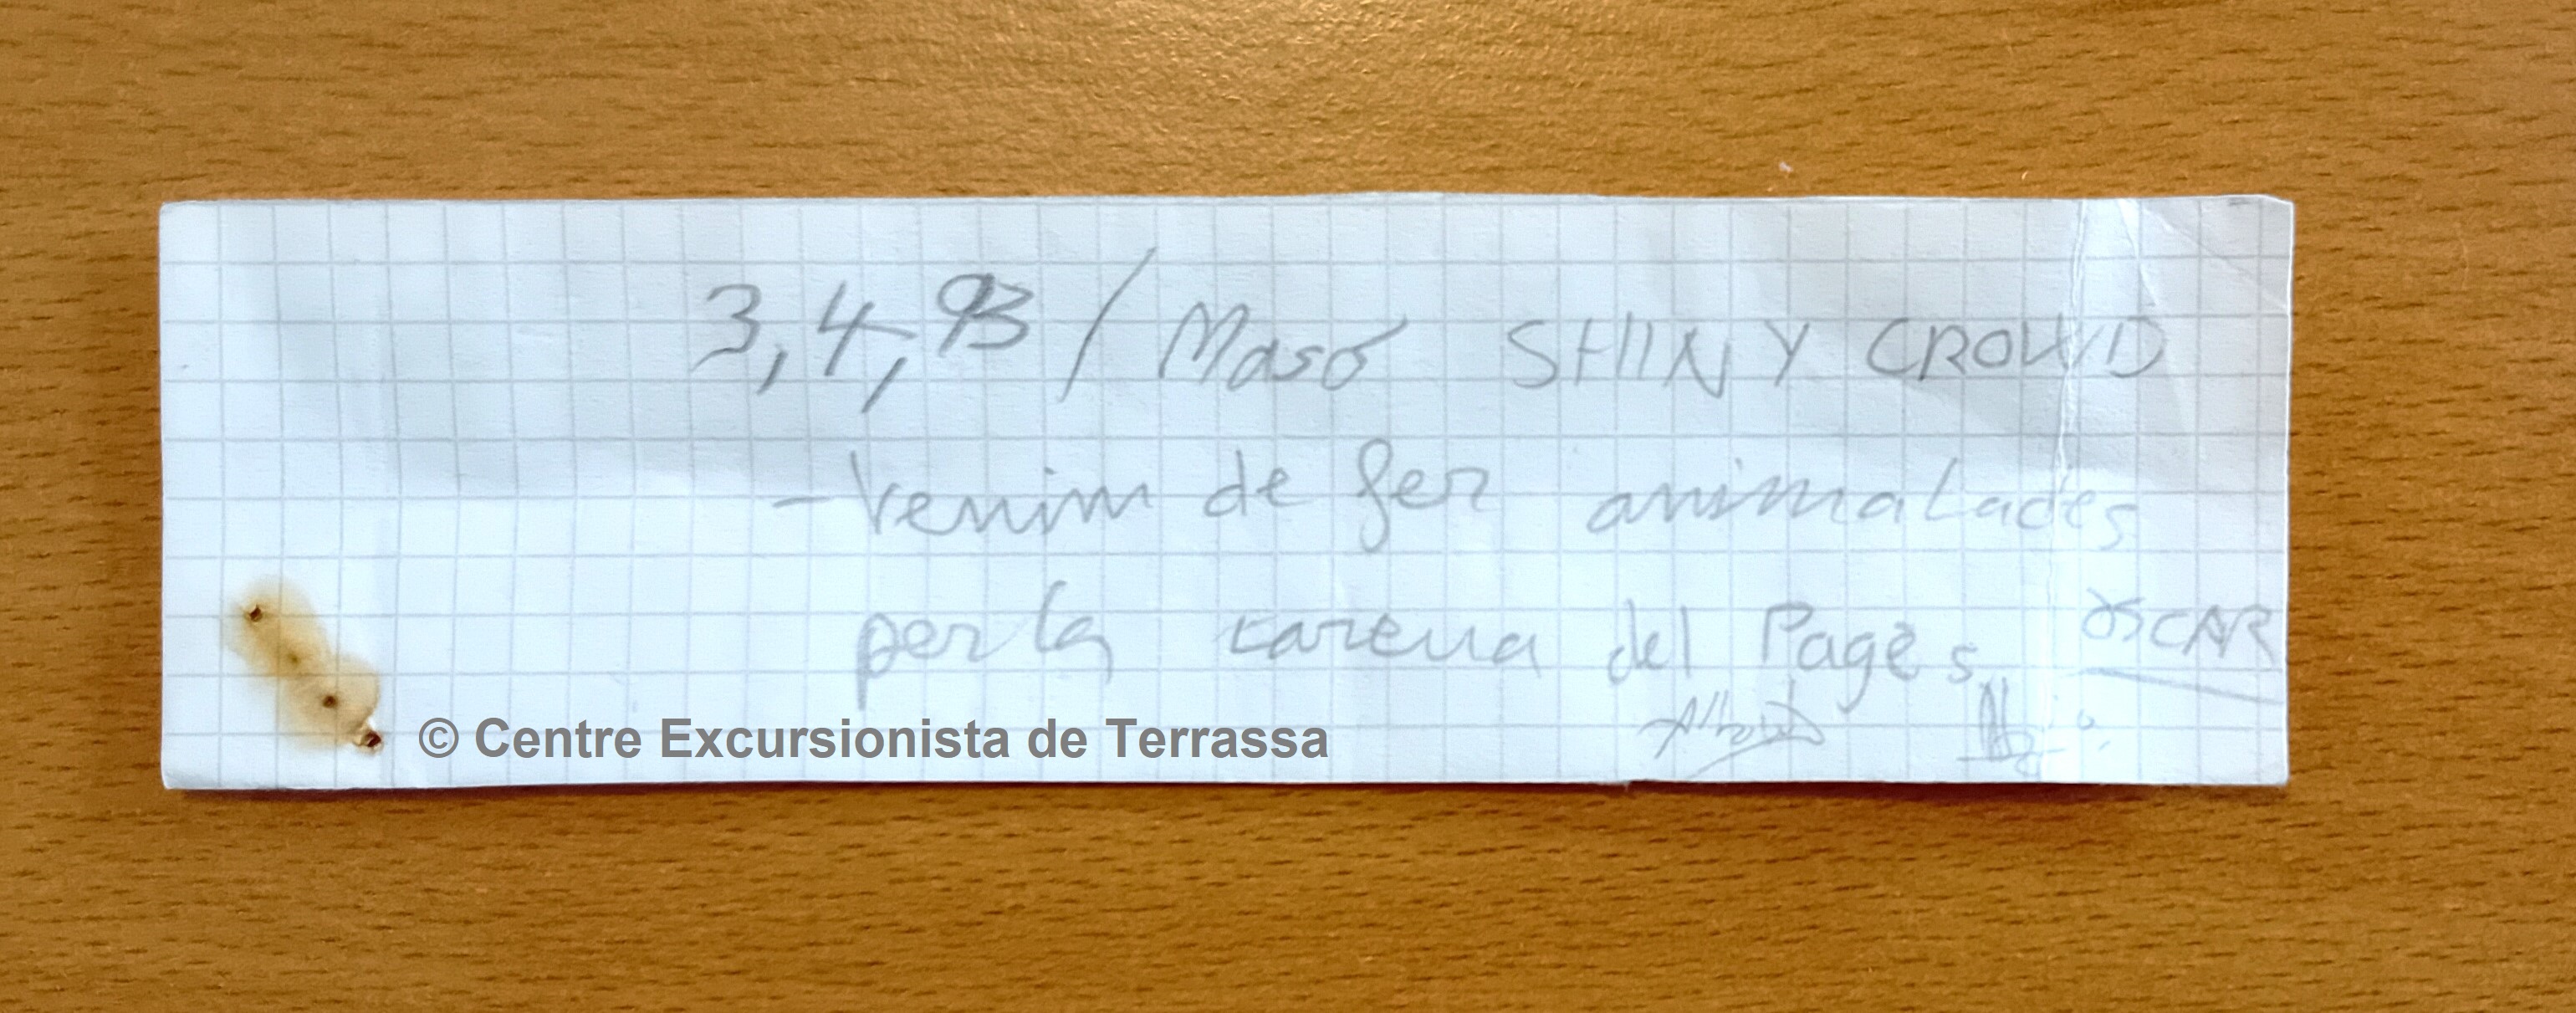 3,4,93 / Masó SHINY CROWD
- Venim de fer animalades
per la carena del Pagès
OSCAR
© Centre Excursionista de Terrassa